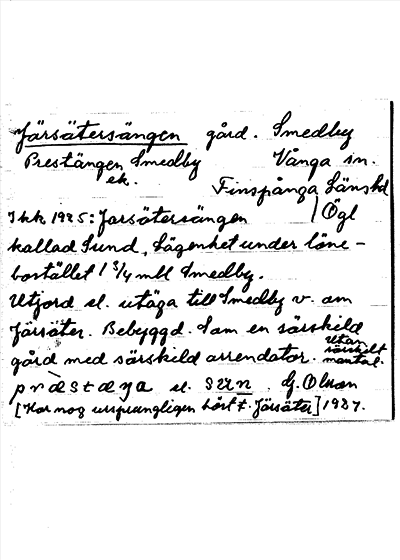 Järsätersängen gård. Smedby
Prestängen Smedby Vånga sn.
ek. Finspånga Länshd
Jkk 1925: Jarsätersängen | Ögl
kallad Sund, Lägenhet under löne-
bostället 1 3/4 mtl Smedby.
Utjord el. utäga till Smedby v. om
Järsäter. Bebyggd. Som en särskild
gård med särskild arrendator. utan
särskilt
mantal.
el. sun. G. Olson
[Har nog ursprungligen hört t. Järsäter] 1927.